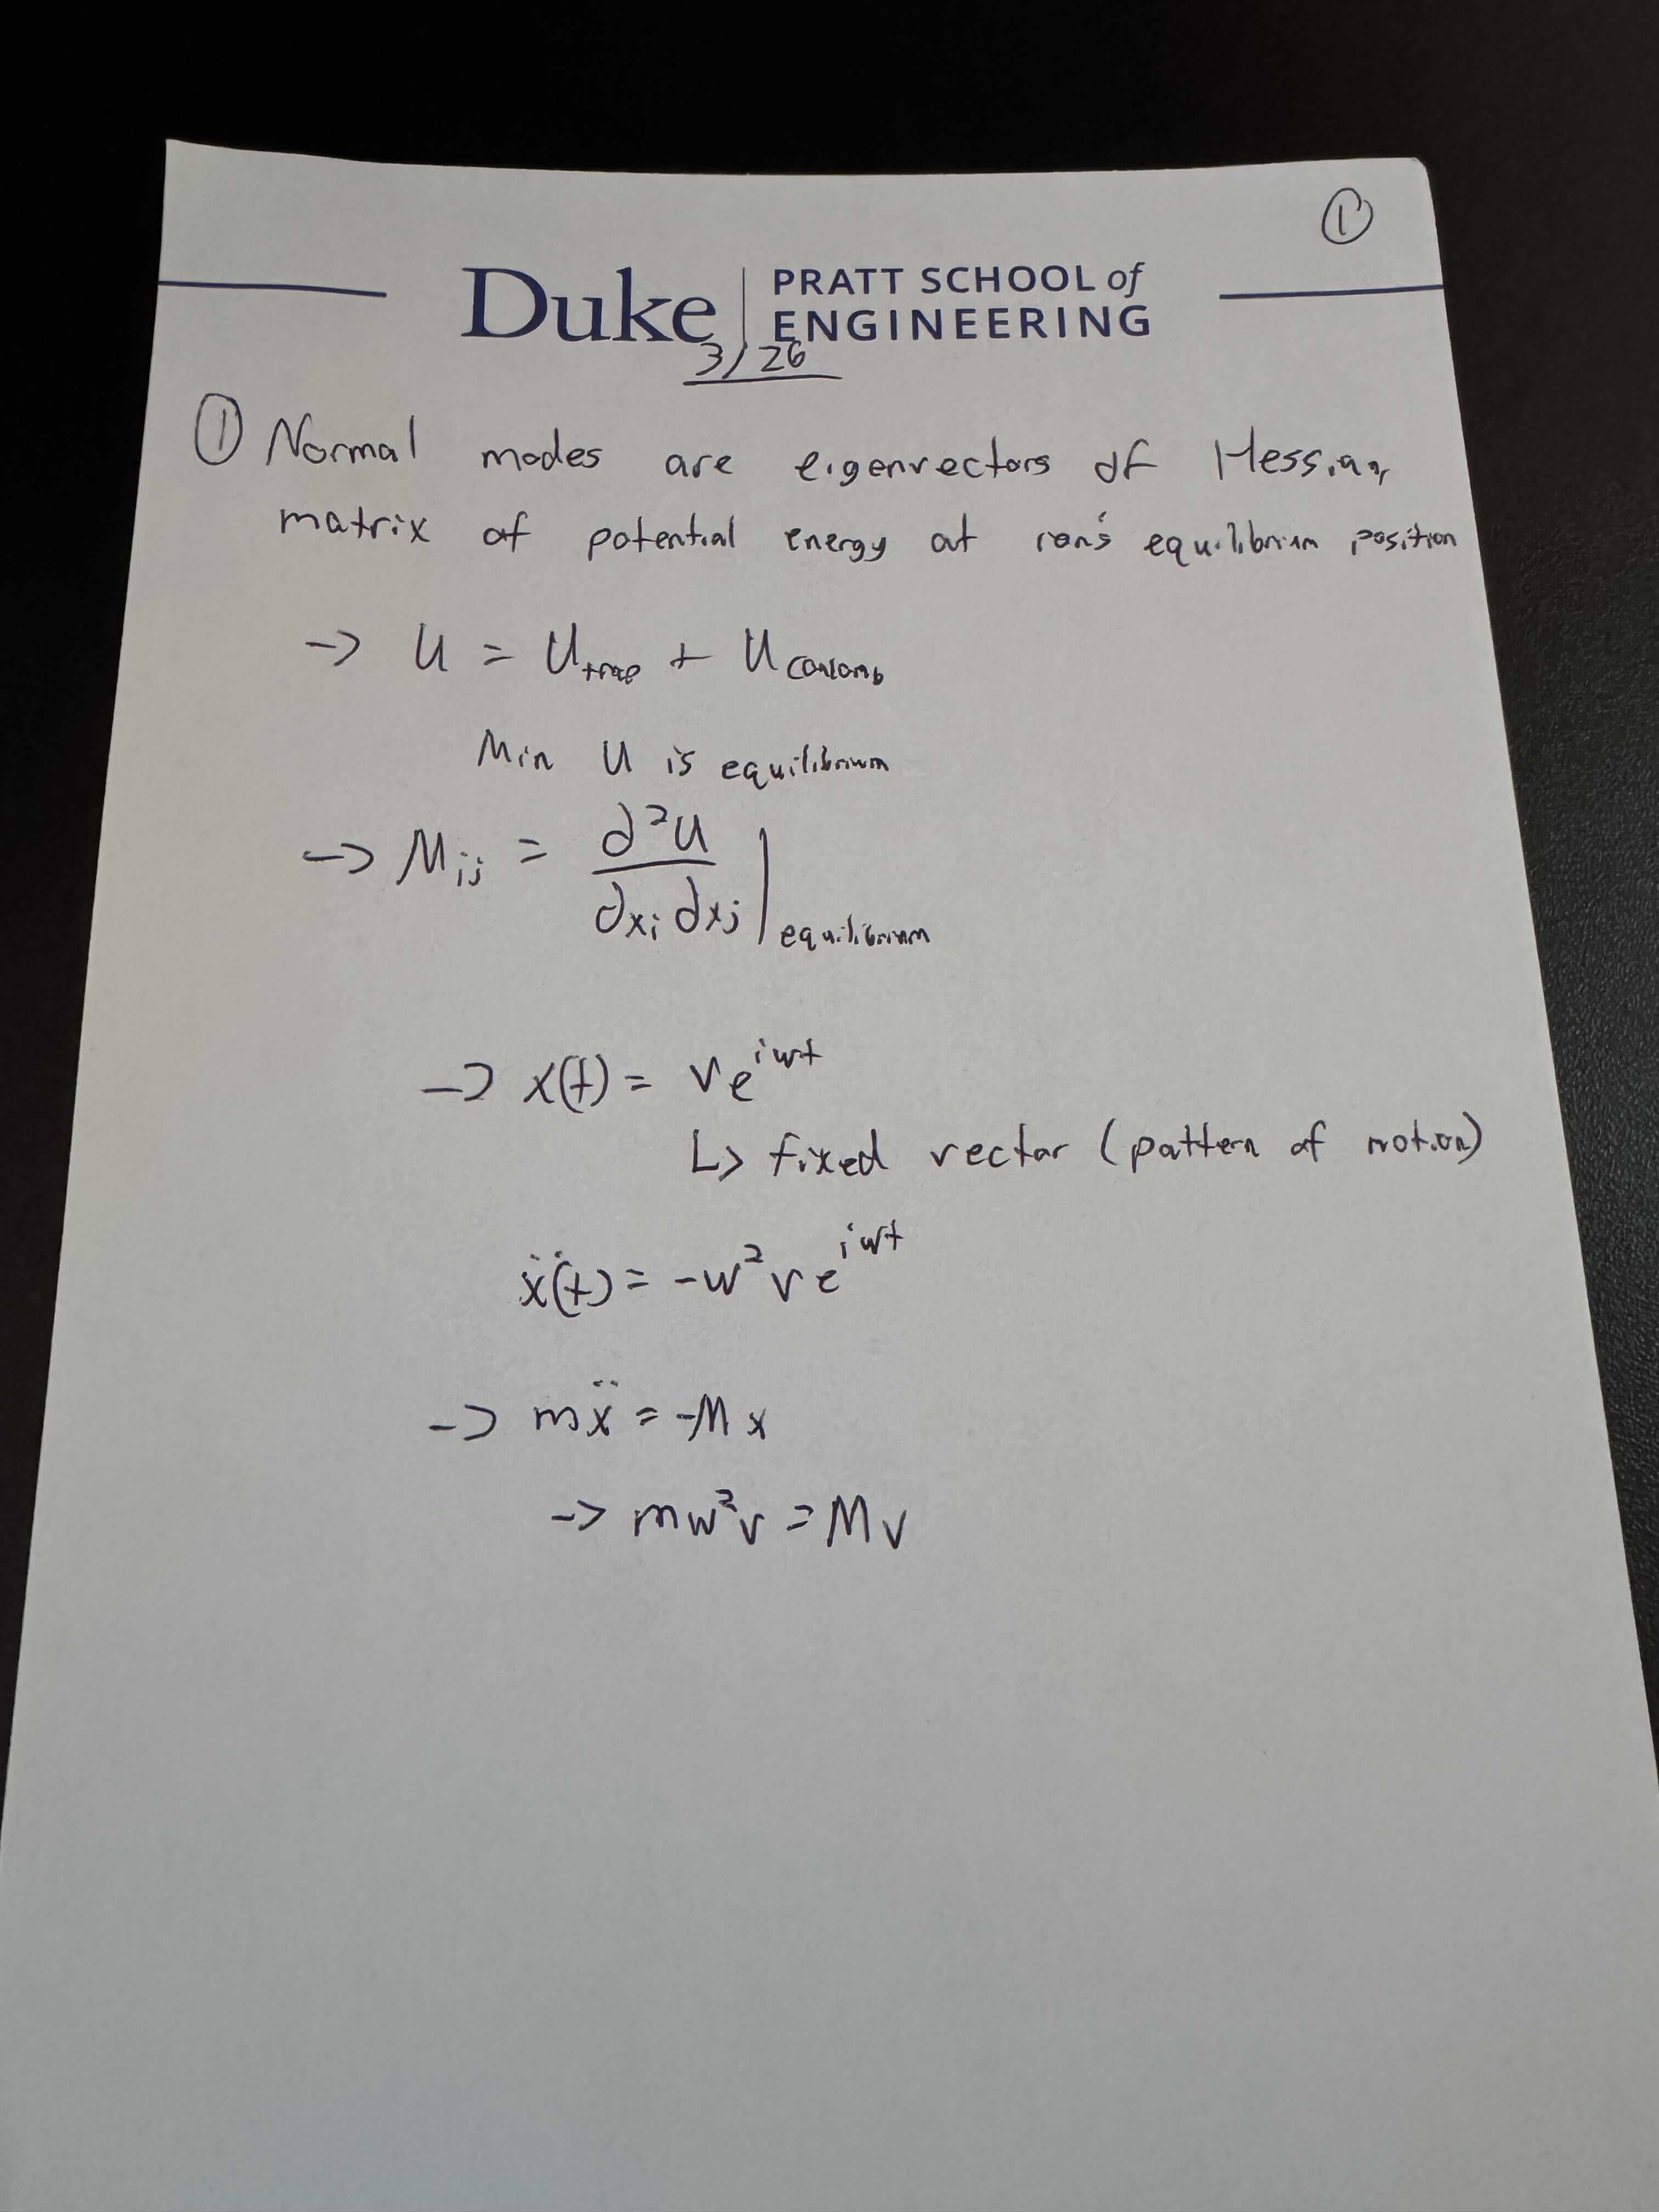 ①
Duke | PRATT SCHOOL of
ENGINEERING
3/26
① Normal modes are eigenvectors of Hessian
matrix of potential energy at ion's equilibrium position
→ U = U_trap + U_coulomb
Min U is equilibrium
→ M_ij = ∂²U / ∂x_i ∂x_j |_equilibrium
→ x(t) = v e^{iwt}
↳ fixed vector (pattern of motion)
ẍ(t) = -w² v e^{iwt}
→ mẍ = -Mx
→ mw²v = Mv